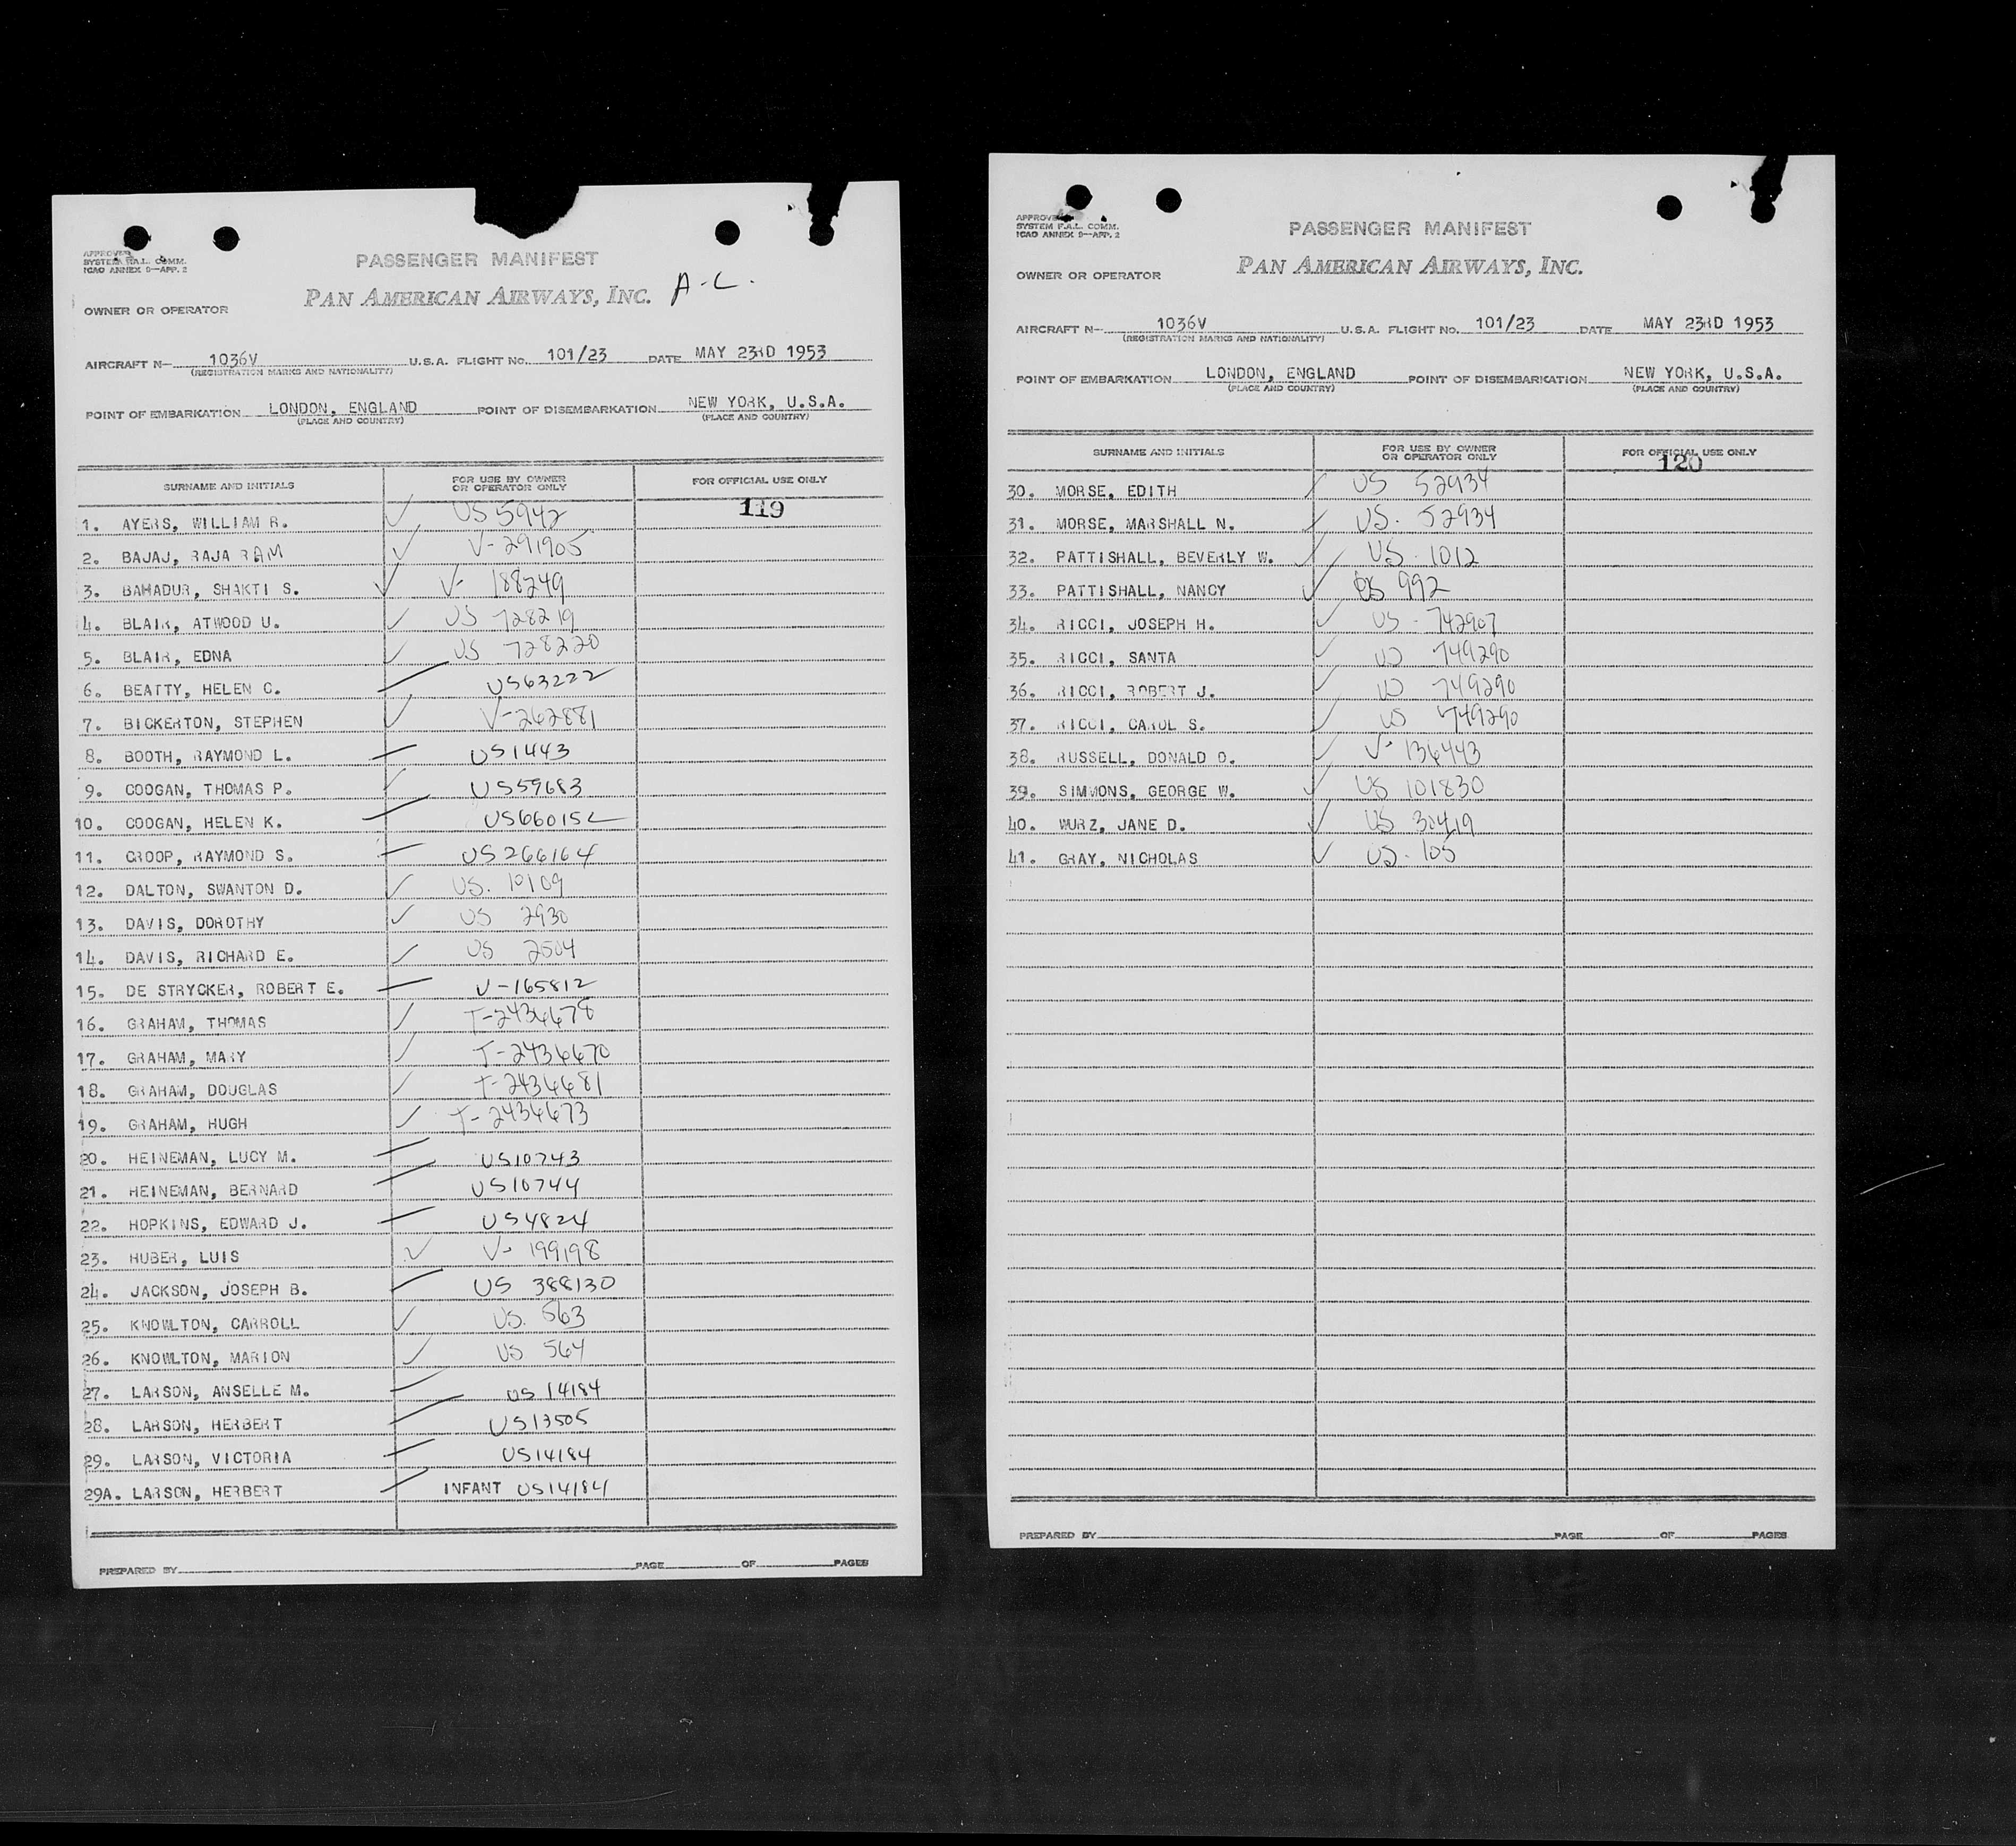 APPROVED
SYSTEM F.A.L. COMM.
ICAO ANNEX 9—APP. 2
PASSENGER MANIFEST
PAN AMERICAN AIRWAYS, INC. A-L.
OWNER OR OPERATOR
AIRCRAFT N— 1036V U.S.A. FLIGHT NO. 101/23 DATE MAY 23RD 1953
(REGISTRATION MARKS AND NATIONALITY)
POINT OF EMBARKATION LONDON, ENGLAND POINT OF DISEMBARKATION NEW YORK, U.S.A.
(PLACE AND COUNTRY) (PLACE AND COUNTRY)
SURNAME AND INITIALS FOR USE BY OWNER OR OPERATOR ONLY FOR OFFICIAL USE ONLY
119
1. AYERS, WILLIAM R. US 5942
2. BAJAJ, RAJA RAM V-291905
3. BAHADUR, SHAKTI S. V- 188249
4. BLAIR, ATWOOD U. US 728219
5. BLAIR, EDNA US 728220
6. BEATTY, HELEN C. US63222
7. BICKERTON, STEPHEN V-262881
8. BOOTH, RAYMOND L. US1443
9. COOGAN, THOMAS P. US59683
10. COOGAN, HELEN K. US66015L
11. CROOP, RAYMOND S. US266164
12. DALTON, SWANTON D. US. 10109
13. DAVIS, DOROTHY US 2930
14. DAVIS, RICHARD E. US 2504
15. DE STRYCKER, ROBERT E. V-165812
16. GRAHAM, THOMAS T-2434678
17. GRAHAM, MARY T-2434670
18. GRAHAM, DOUGLAS T-2434681
19. GRAHAM, HUGH T-2434673
20. HEINEMAN, LUCY M. US10743
21. HEINEMAN, BERNARD US10744
22. HOPKINS, EDWARD J. US4824
23. HUBER, LUIS V- 199198
24. JACKSON, JOSEPH B. US 388130
25. KNOWLTON, CARROLL US. 563
26. KNOWLTON, MARION US 564
27. LARSON, ANSELLE M. US 14184
28. LARSON, HERBERT US13505
29. LARSON, VICTORIA US14184
29A. LARSON, HERBERT INFANT US14184
PREPARED BY PAGE OF PAGES
APPROVED
SYSTEM F.A.L. COMM.
ICAO ANNEX 9—APP. 2
PASSENGER MANIFEST
PAN AMERICAN AIRWAYS, INC.
OWNER OR OPERATOR
AIRCRAFT N— 1036V U.S.A. FLIGHT NO. 101/23 DATE MAY 23RD 1953
(REGISTRATION MARKS AND NATIONALITY)
POINT OF EMBARKATION LONDON, ENGLAND POINT OF DISEMBARKATION NEW YORK, U.S.A.
(PLACE AND COUNTRY) (PLACE AND COUNTRY)
SURNAME AND INITIALS FOR USE BY OWNER OR OPERATOR ONLY FOR OFFICIAL USE ONLY
120
30. MORSE, EDITH US 52934
31. MORSE, MARSHALL N. US. 52934
32. PATTISHALL, BEVERLY W. US - 1012
33. PATTISHALL, NANCY US 992
34. RICCI, JOSEPH H. US - 742907
35. RICCI, SANTA US 749290
36. RICCI, ROBERT J. US 749290
37. RICCI, CAROL S. US 749290
38. RUSSELL, DONALD O. V- 136443
39. SIMMONS, GEORGE W. US 101830
40. WURZ, JANE D. US 30419
41. GRAY, NICHOLAS US. 105
PREPARED BY PAGE OF PAGES